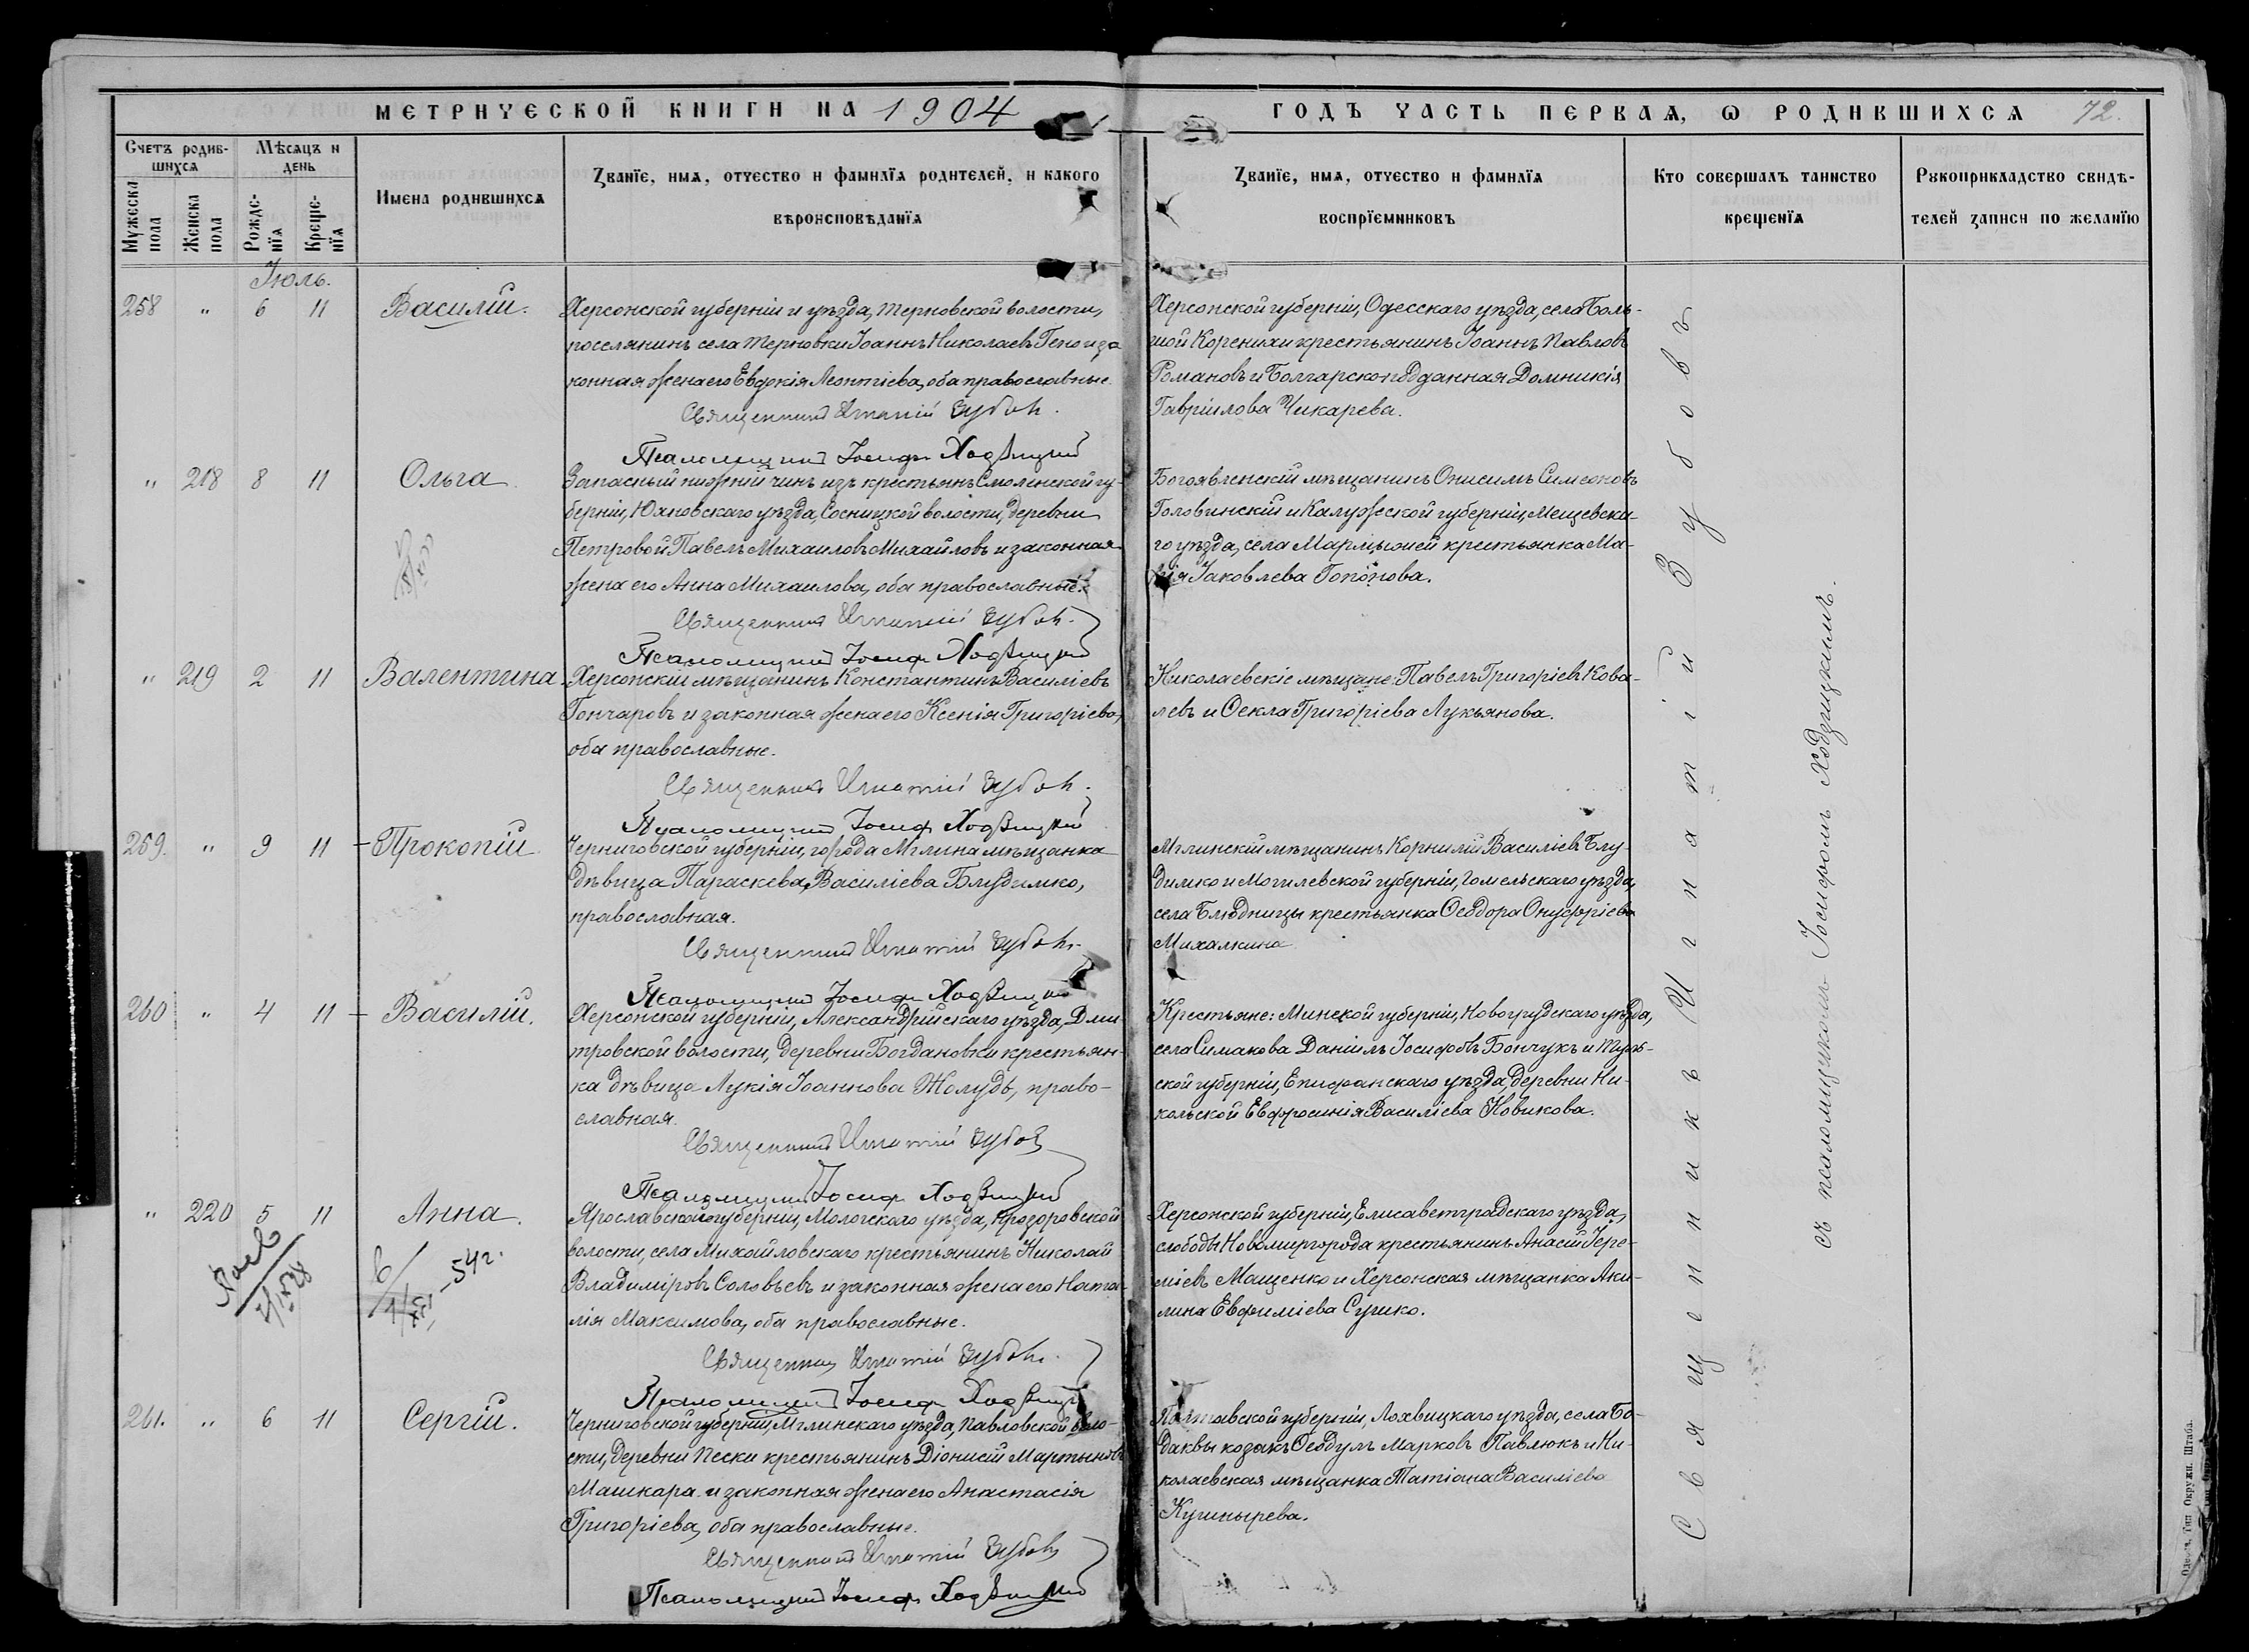 МЕТРИЧЕСКОЙ КНИГИ НА 1904
ГОДЪ ЧАСТЬ ПЕРВАЯ, Ѡ РОДИВШИХСЯ 72.
Счетъ родив-
шихся
Мѣсяцъ и
день
Мужеска
пола
Женска
пола
Рожде-
нїя
Креще-
нїя
Имена родившихся
Званїе, имя, отчество и фамилїя родителей, и какого
вѣроисповѣданїя
Званїе, имя, отчество и фамилїя
воспрїемниковъ
Кто совершалъ таинство
крещенїя
Рукоприкладство свидѣ-
телей записи по желанїю
Іюль.
258 " 6 11 Василій.
Херсонской губерніи и уѣзда, Терновской волости,
поселянинъ села Терновки Іоаннъ Николаевъ Гено и за
конная жена его Евдокія Леонтіева, оба православные.
Священникъ Игнатій Зубовъ.
Псаломщикъ Іосифъ Ходзицкій
Херсонской губерніи, Одесскаго уѣзда, села Боль-
шой Коренихи крестьянинъ Іоаннъ Павловъ
Романовъ и Болгарскоподданная Домникія
Гавріилова Чикарева.
" 218 8 11 Ольга.
Запасный нижній чинъ изъ крестьянъ Смоленской гу-
берніи, Юхновскаго уѣзда, Сосницкой волости, деревни
Петровой Павелъ Михаиловъ Михайловъ и законная
жена его Анна Михаилова, оба православные.
Священникъ Игнатій Зубовъ.
Псаломщикъ Іосифъ Ходзицкій
Богоявленскій мѣщанинъ Онисимъ Симеоновъ
Головинскій и Калужской губерніи, Мещевска-
го уѣзда, села Марлыжей крестьянка Ма-
рія Іаковлева Гопонова.
" 219 2 11 Валентина.
Херсонскій мѣщанинъ Константинъ Василіевъ
Гончаровъ и законная жена его Ксенія Григоріева,
оба православные.
Священникъ Игнатій Зубовъ.
Псаломщикъ Іосифъ Ходзицкій
Николаевскіе мѣщане: Павелъ Григоріевъ Кова-
левъ и Ѳекла Григоріева Лукьянова.
259. " 9 11 Прокопій
Черниговской губерніи, города Мглина мѣщанка
дѣвица Параскева Василіева Блудимко,
православная.
Священникъ Игнатій Зубовъ.
Псаломщикъ Іосифъ Ходзицкій
Мглинскій мѣщанинъ Корнилій Василіевъ Блу-
димко и Могилевской губерніи, Гомельскаго уѣзда,
села Блюдницы крестьянка Ѳеодора Онуфріева
Михалкина
260 " 4 11 Василій.
Херсонской губерніи, Александрійскаго уѣзда, Дми-
тровской волости, деревни Богдановки крестьян-
ка дѣвица Лукія Іоаннова Жолудь, право-
славная.
Священникъ Игнатій Зубовъ
Псаломщикъ Іосифъ Ходзицкій
Крестьяне: Минской губерніи, Новогрудскаго уѣзда,
села Симакова Даніилъ Іосифовъ Бончукъ и Туль-
ской губерніи, Епифанскаго уѣзда, деревни Ни-
кольской Евфросинія Василіева Новикова.
" 220 5 11 Анна.
Ярославской губерніи, Мологскаго уѣзда, Прозоровской
волости, села Михайловскаго крестьянинъ Николай
Владиміровъ Соловьевъ и законная жена его Ната-
лія Максимова, оба православные.
Священникъ Игнатій Зубовъ.
Псаломщикъ Іосифъ Ходзицкій
Херсонской губерніи, Елисаветградскаго уѣзда,
слободы Новомиргорода крестьянинъ Анасій Іере-
міевъ Мащенко и Херсонская мѣщанка Аки-
лина Евфиміева Сушко.
-54г.
261. " 6 11 Сергій.
Черниговской губерніи, Мглинскаго уѣзда, Павловской воло-
сти, деревни Пески крестьянинъ Діонисій Мартыновъ
Машкара и законная жена его Анастасія
Григоріева, оба православные.
Священникъ Игнатій Зубовъ
Псаломщикъ Іосифъ Ходзицкій
Полтавской губерніи, Лохвицкаго уѣзда, села Бо-
даквы козакъ Ѳеодулъ Марковъ Павлюкъ и Ни-
колаевская мѣщанка Татіана Василіева
Кушнырева.
Священникъ Игнатій Зубовъ
съ псаломщикомъ Іосифомъ Ходзицкимъ.
Одесса, Тип Окружн. Штаба.